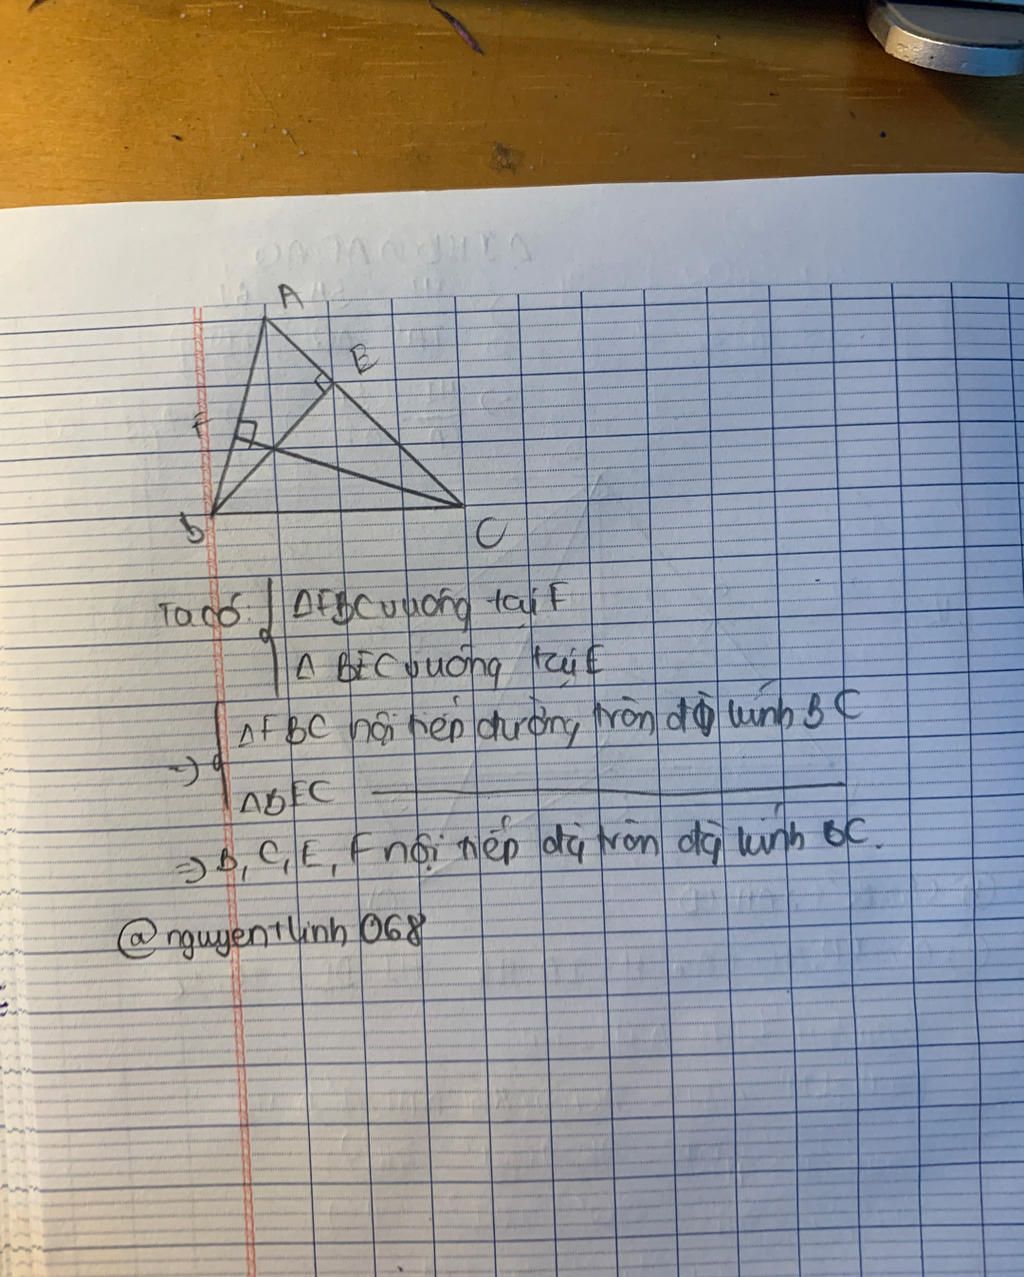 A
E
F
B
C
Ta có: ΔFBC vuông tại F
Δ BEC vuông tại E
=> ΔFBC nội tiếp đường tròn đg kính BC
ΔBEC
=> B, C, E, F nội tiếp đg tròn đg kính BC.
@nguyentlinh068